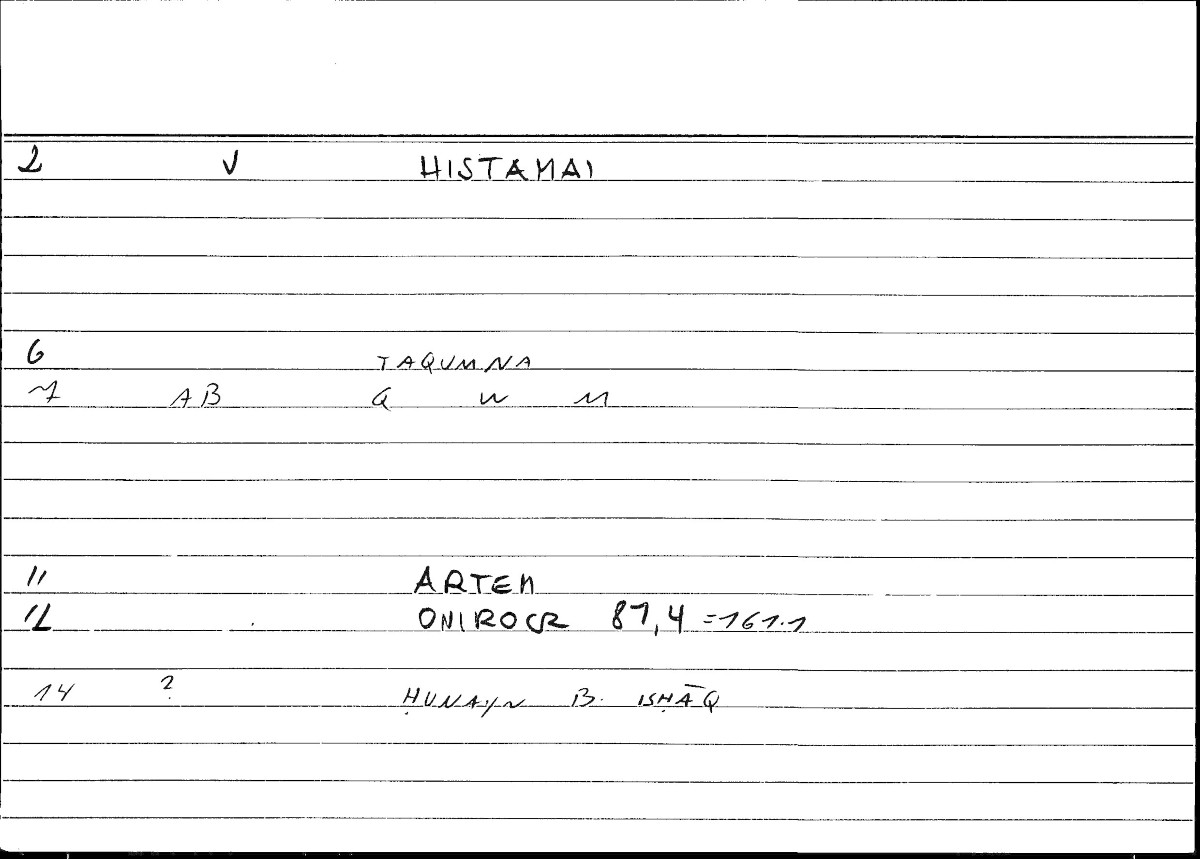 2 V HISTAMAI
6 TAQUMNA
7 AB Q W M
11 ARTEM
12 ONIROCR 87,4 =161.1
14 ? ḤUNAYN B. ISḤĀQ